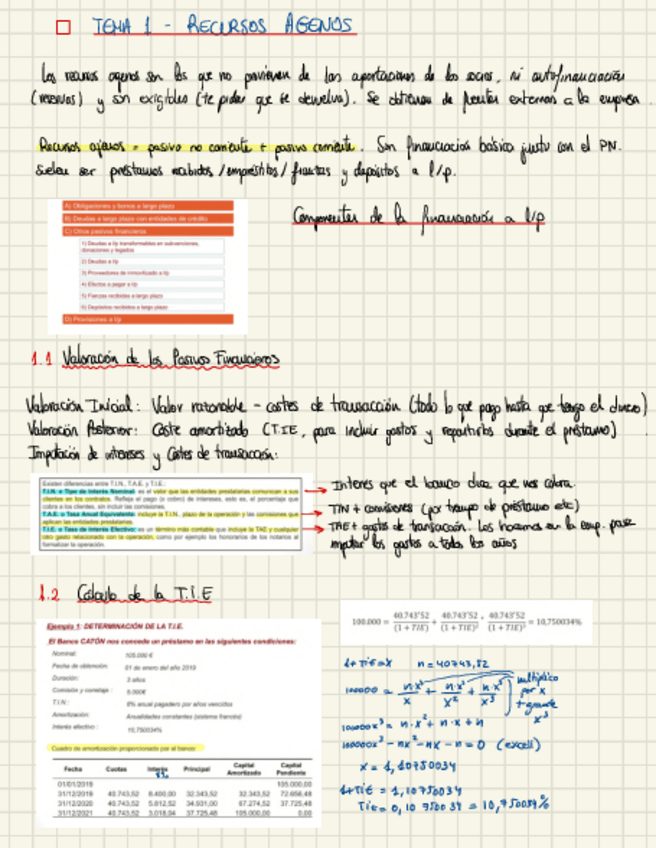 TEMA 1 - RECURSOS AGENOS
Los recursos agenos son los que no provienen de las aportaciones de los socios, ni autofinanciación
(reservas) y son exigibles (te piden que se devuelva). Se obtienen de fuentes externas a la empresa.
Recursos ajenos = pasivo no corriente + pasivo corriente. Son financiación básica junto con el PN.
Suelen ser préstamos recibidos / empréstitos / fianzas y depósitos a l/p.
A) Obligaciones y bonos a largo plazo
B) Deudas a largo plazo con entidades de crédito
C) Otros pasivos financieros
1) Deudas a l/p transformables en subvenciones,
donaciones y legados
2) Deudas a l/p
3) Proveedores de inmovilizado a l/p
4) Efectos a pagar a l/p
5) Fianzas recibidas a largo plazo
6) Depósitos recibidos a largo plazo
D) Provisiones a l/p
Componentes de la financiación a l/p
1.1 Valoración de los Pasivos Financieros
Valoración Inicial: Valor razonable - costes de transacción (todo lo que pago hasta que tengo el dinero)
Valoración Posterior: Coste amortizado (TIE, para incluir gastos y repartirlos durante el préstamo)
Imputación de intereses y Costes de transacción:
Existen diferencias entre T.I.N., T.A.E. y T.I.E.:
T.I.N. o Tipo de Interés Nominal: es el valor que las entidades prestatarias comunican a sus
clientes en los contratos. Refleja el pago (o cobro) de intereses, esto es, el porcentaje que
cobra a los clientes, sin incluir las comisiones.
T.A.E. o Tasa Anual Equivalente: incluye la T.I.N., plazo de la operación y las comisiones que
aplican las entidades prestatarias.
T.I.E. o Tasa de Interés Efectivo: es un término más contable que incluye la TAE y cualquier
otro gasto relacionado con la operación, como por ejemplo los honorarios de los notarios al
formalizar la operación.
Interés que el banco dice que nos cobra.
TIN + comisiones (por tiempo de préstamo etc)
TAE + gastos de transacción. Los hacemos en la emp. para
imputar los gastos a todos los años
1.2 Cálculo de la T.I.E
Ejemplo 1: DETERMINACIÓN DE LA T.I.E.
El Banco CATÓN nos concede un préstamo en las siguientes condiciones:
Nominal: 105.000 €
Fecha de obtención: 01 de enero del año 2019
Duración: 3 años
Comisión y corretaje: 5.000€
T.I.N.: 8% anual pagadero por años vencidos
Amortización: Anualidades constantes (sistema francés)
Interés efectivo: 10,750034%
Cuadro de amortización proporcionado por el banco:
Fecha Cuotas Interés 8% Principal Capital Amortizado Capital Pendiente
01/01/2019 105.000,00
31/12/2019 40.743,52 8.400,00 32.343,52 32.343,52 72.656,48
31/12/2020 40.743,52 5.812,52 34.931,00 67.274,52 37.725,48
31/12/2021 40.743,52 3.018,04 37.725,48 105.000,00 0,00
100.000 = 40.743'52 / (1 + TIE) + 40.743'52 / (1 + TIE)² + 40.743'52 / (1 + TIE)³ = 10,750034%
1+TIE=X n=40743,52
100000 = n·x³/x + n·x³/x² + n·x³/x³
multiplico
por x
+ grande
x³
100000x³ = n·x² + n·x + n
100000x³ - nx² - nx - n = 0 (excell)
x = 1,10750034
1+TIE = 1,10750034
TIE = 0,10750034 = 10,750034%